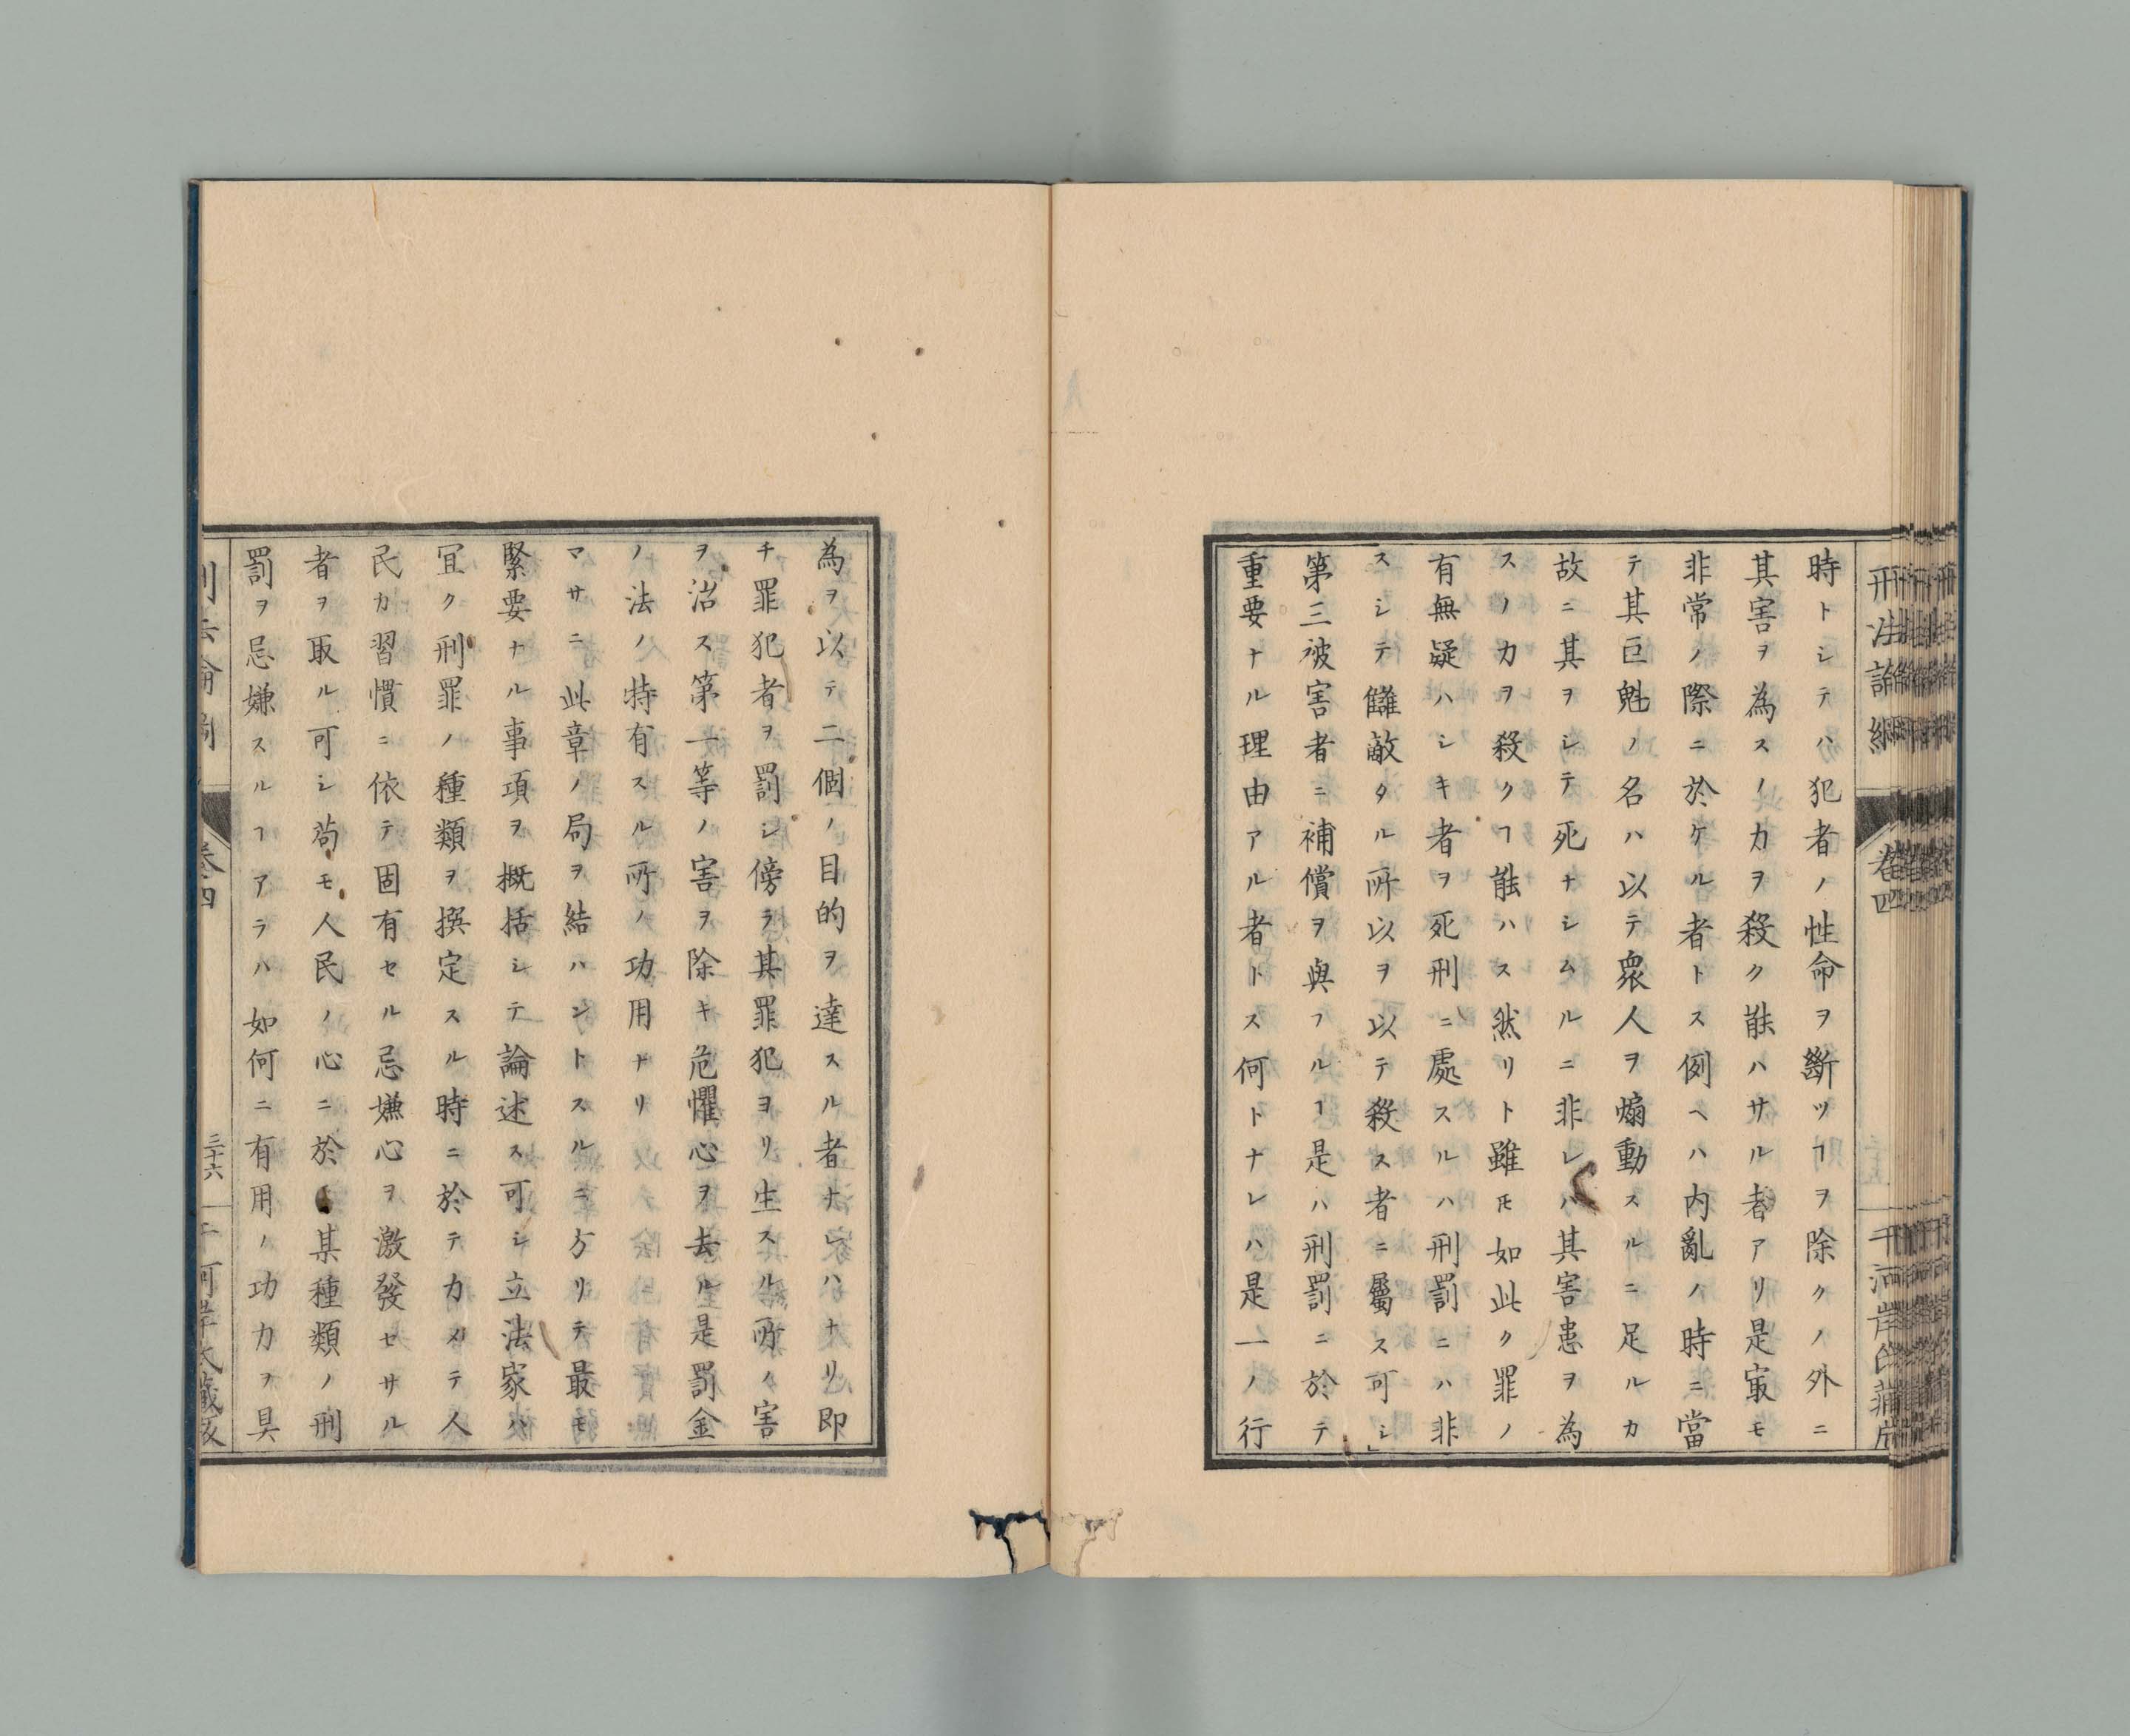 刑法論綱
卷四
時トシテハ犯者ノ性命ヲ斷ツヿヲ除クノ外ニ
其害ヲ為スノカヲ殺ク能ハサル者アリ是㝡モ
非常ノ際ニ於ケル者トス例ヘハ内亂ノ時ニ當
テ其巨魁ノ名ハ以テ衆人ヲ煽動スルニ足ルカ
故ニ其ヲシテ死ナシムルニ非レハ其害恚ヲ為
スノカヲ殺クヿ能ハス然リト雖𪜈如此ク罪ノ
有無疑ハシキ者ヲ死刑ニ處スルハ刑罰ニハ非
スシテ讎敵タル所以ヲ以テ殺ス者ニ屬ス可シ」
第三被害者ニ補償ヲ與フルヿ是ハ刑罰ニ於テ
重要ナル理由アル者トス何トナレハ是一ノ行
為ヲ以テ二個ノ目的ヲ達スル者ナレハナリ即
チ罪犯者ヲ罰シ傍ラ其罪犯ヨリ生スル所ノ害
ヲ治ス第一等ノ害ヲ除キ危懼心ヲ去ル是罰金
ノ法ノ特有スル所ノ功用ナリ
マサニ此章ノ局ヲ結ハントスルニ方リテ最モ
緊要ナル事項ヲ概括シテ論述ス可シ立法家ハ
宜ク刑罪ノ種類ヲ撰定スル時ニ於テカメテ人
民カ習慣ニ依テ固有セル忌嫌心ヲ激發セサル
者ヲ取ル可シ苟モ人民ノ心ニ於テ某種類ノ刑
罰ヲ忌嫌スルヿアラハ如何ニ有用ノ功力ヲ具
卷四
三十六